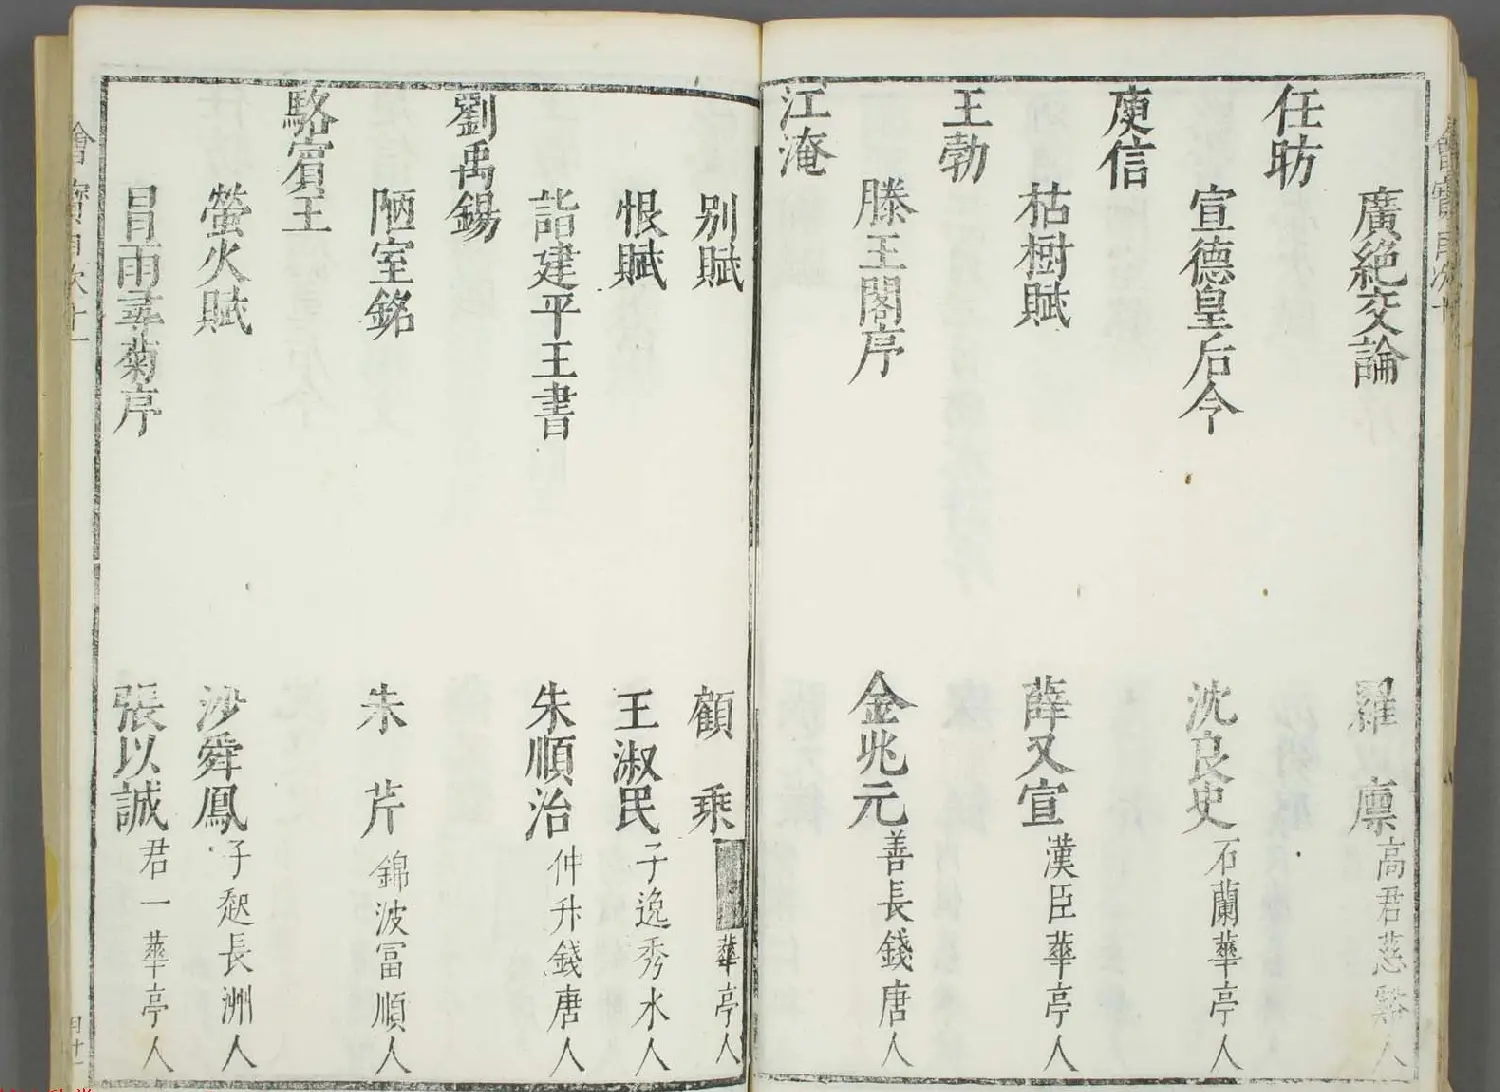 廣絕交論 羅廩 高君慈谿人
任昉
宣德皇后令 沈良史 石蘭華亭人
庾信
枯樹賦 薛又宣 漢臣華亭人
王勃
滕王閣序 金兆元 善長錢唐人
江淹
別賦 顧乘 華亭人
恨賦 王淑民 子逸秀水人
詣建平王書 朱順治 仲升錢唐人
劉禹錫
陋室銘 朱芹 錦波富順人
駱賓王
螢火賦 沙舜鳳 子 長洲人
冒雨尋菊序 張以誠 君一華亭人